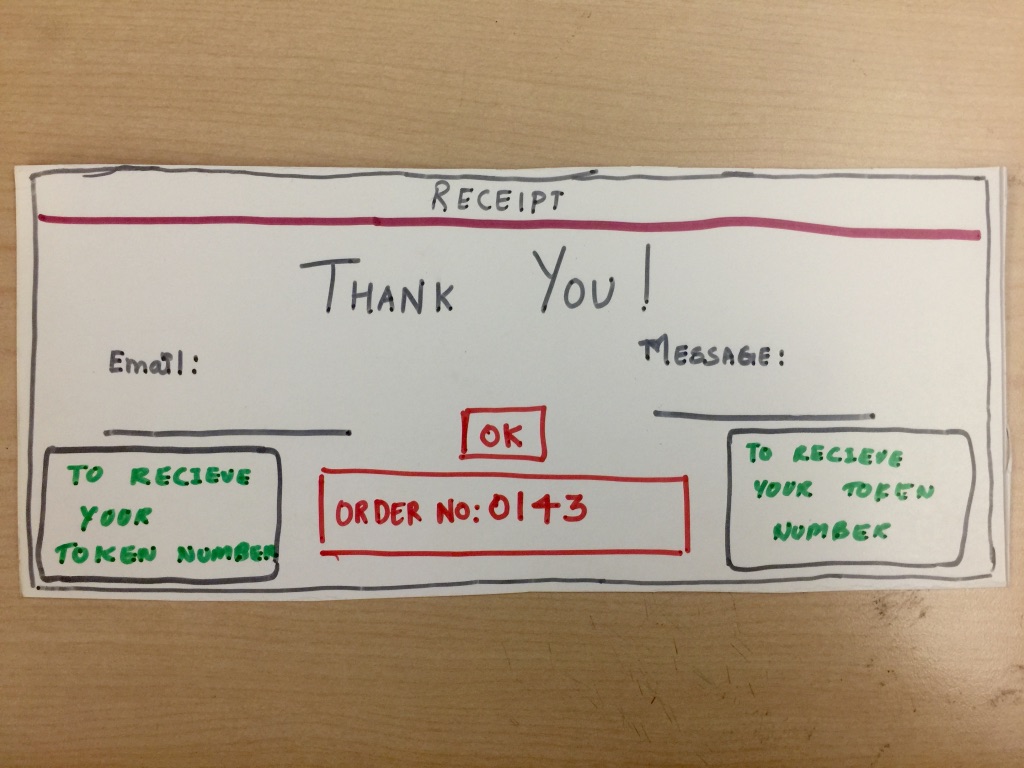 RECEIPT
THANK YOU!
Email:
MESSAGE:
OK
TO RECIEVE
YOUR
TOKEN NUMBER
ORDER NO: 0143
TO RECIEVE
YOUR TOKEN
NUMBER